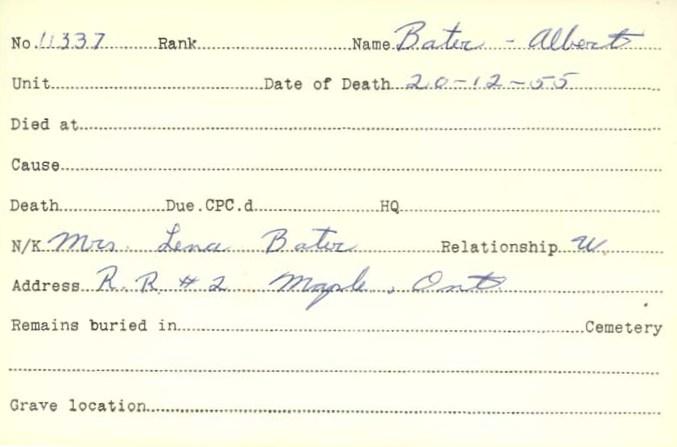 No. 11337 Rank Name Bater - Albert
Unit Date of Death 20-12-55
Died at
Cause
Death Due.CPC.d HQ
N/K Mrs. Lena Bater Relationship W.
Address R. R. #2 Maple, Ont
Remains buried in Cemetery
Grave location